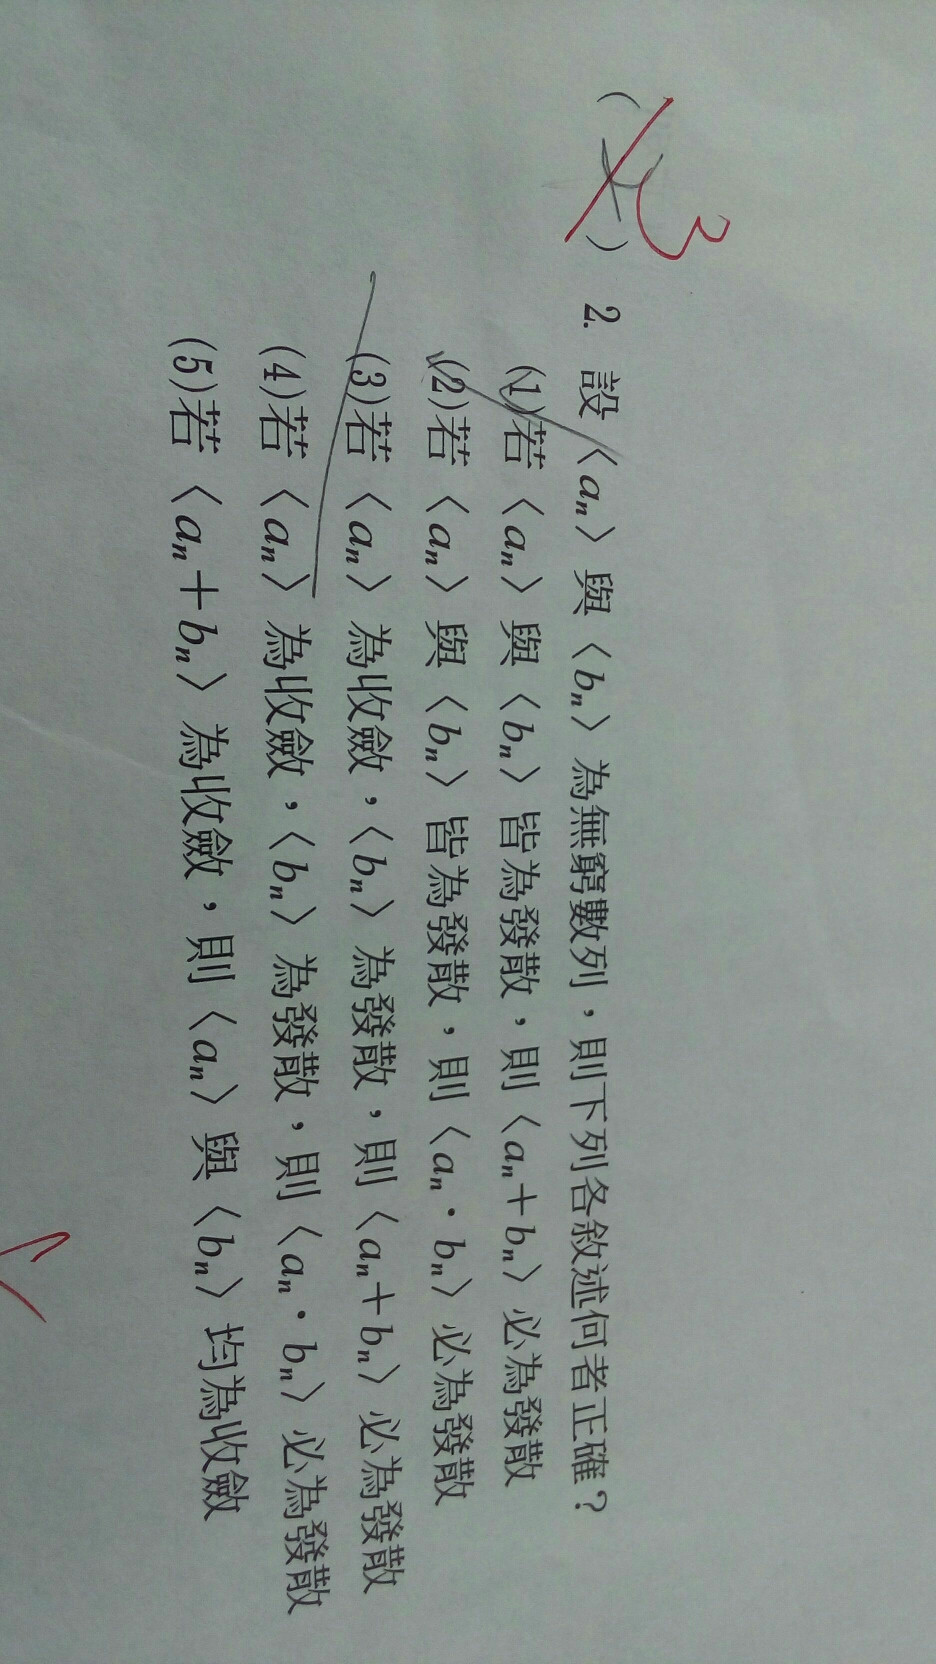 ( ) 3
2. 設〈aₙ〉與〈bₙ〉為無窮數列，則下列各敘述何者正確？
(1)若〈aₙ〉與〈bₙ〉皆為發散，則〈aₙ＋bₙ〉必為發散
(2)若〈aₙ〉與〈bₙ〉皆為發散，則〈aₙ·bₙ〉必為發散
(3)若〈aₙ〉為收斂，〈bₙ〉為發散，則〈aₙ＋bₙ〉必為發散
(4)若〈aₙ〉為收斂，〈bₙ〉為發散，則〈aₙ·bₙ〉必為發散
(5)若〈aₙ＋bₙ〉為收斂，則〈aₙ〉與〈bₙ〉均為收斂